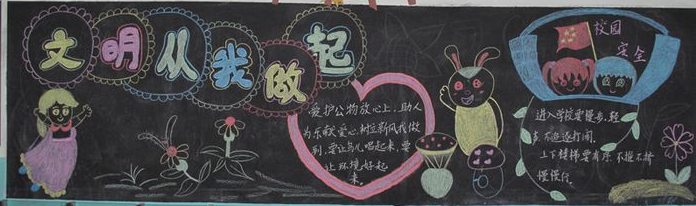 文明从我做起
爱护公物放心上,助人
为乐献爱心.树立新风我做
到,要让鸟儿唱起来,要
让环境好起
来。
校园
安全
进入学校要慢步,轻
声,不追逐打闹.
上下楼梯要有序,不推不挤
慢慢行。